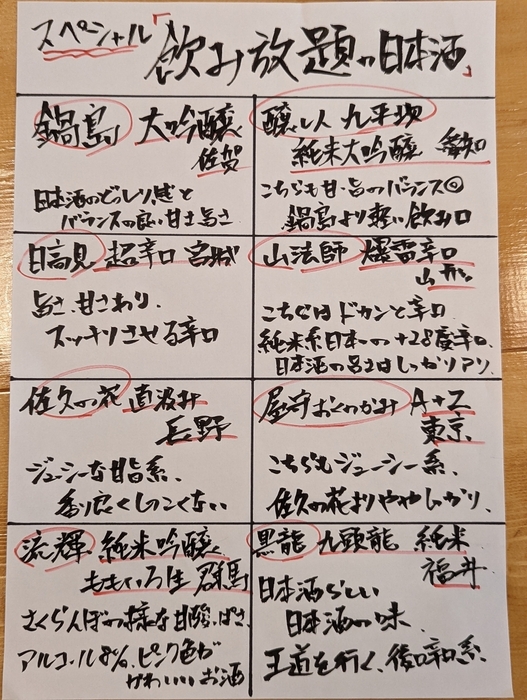 スペシャル「飲み放題の日本酒」
鍋島 大吟醸
佐賀
日本酒のどっしり感と
バランスの良い甘さ旨さ
醸し人 九平次
純米大吟醸 愛知
こちらも甘・旨のバランス◎
鍋島より軽い飲み口
日高見 超辛口 宮城
旨さ、甘さあり、
スッキリさせる辛口
山法師 爆雷辛口
山形
こちらはドカンと辛口
純米系日本一の+28度辛口、
日本酒の旨さはしっかりアリ、
佐久の花 直汲み
長野
ジューシーな甘旨系、
香り良くしつこくない
屋守おくのかみ
東京
こちらもジューシー系、
佐久の花よりややしっかり、
流輝 純米吟醸
ももいろ生 群馬
さくらんぼの様な甘酸っぱさ
アルコール8%、ピンク色が
かわいいお酒
黒龍 九頭龍 純米
福井
日本酒らしい
日本酒の味、
王道を行く、後口辛口系、